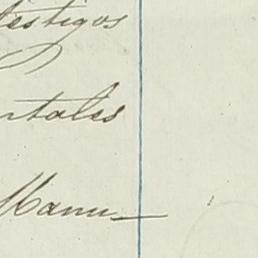 testigos
ntales
Manu